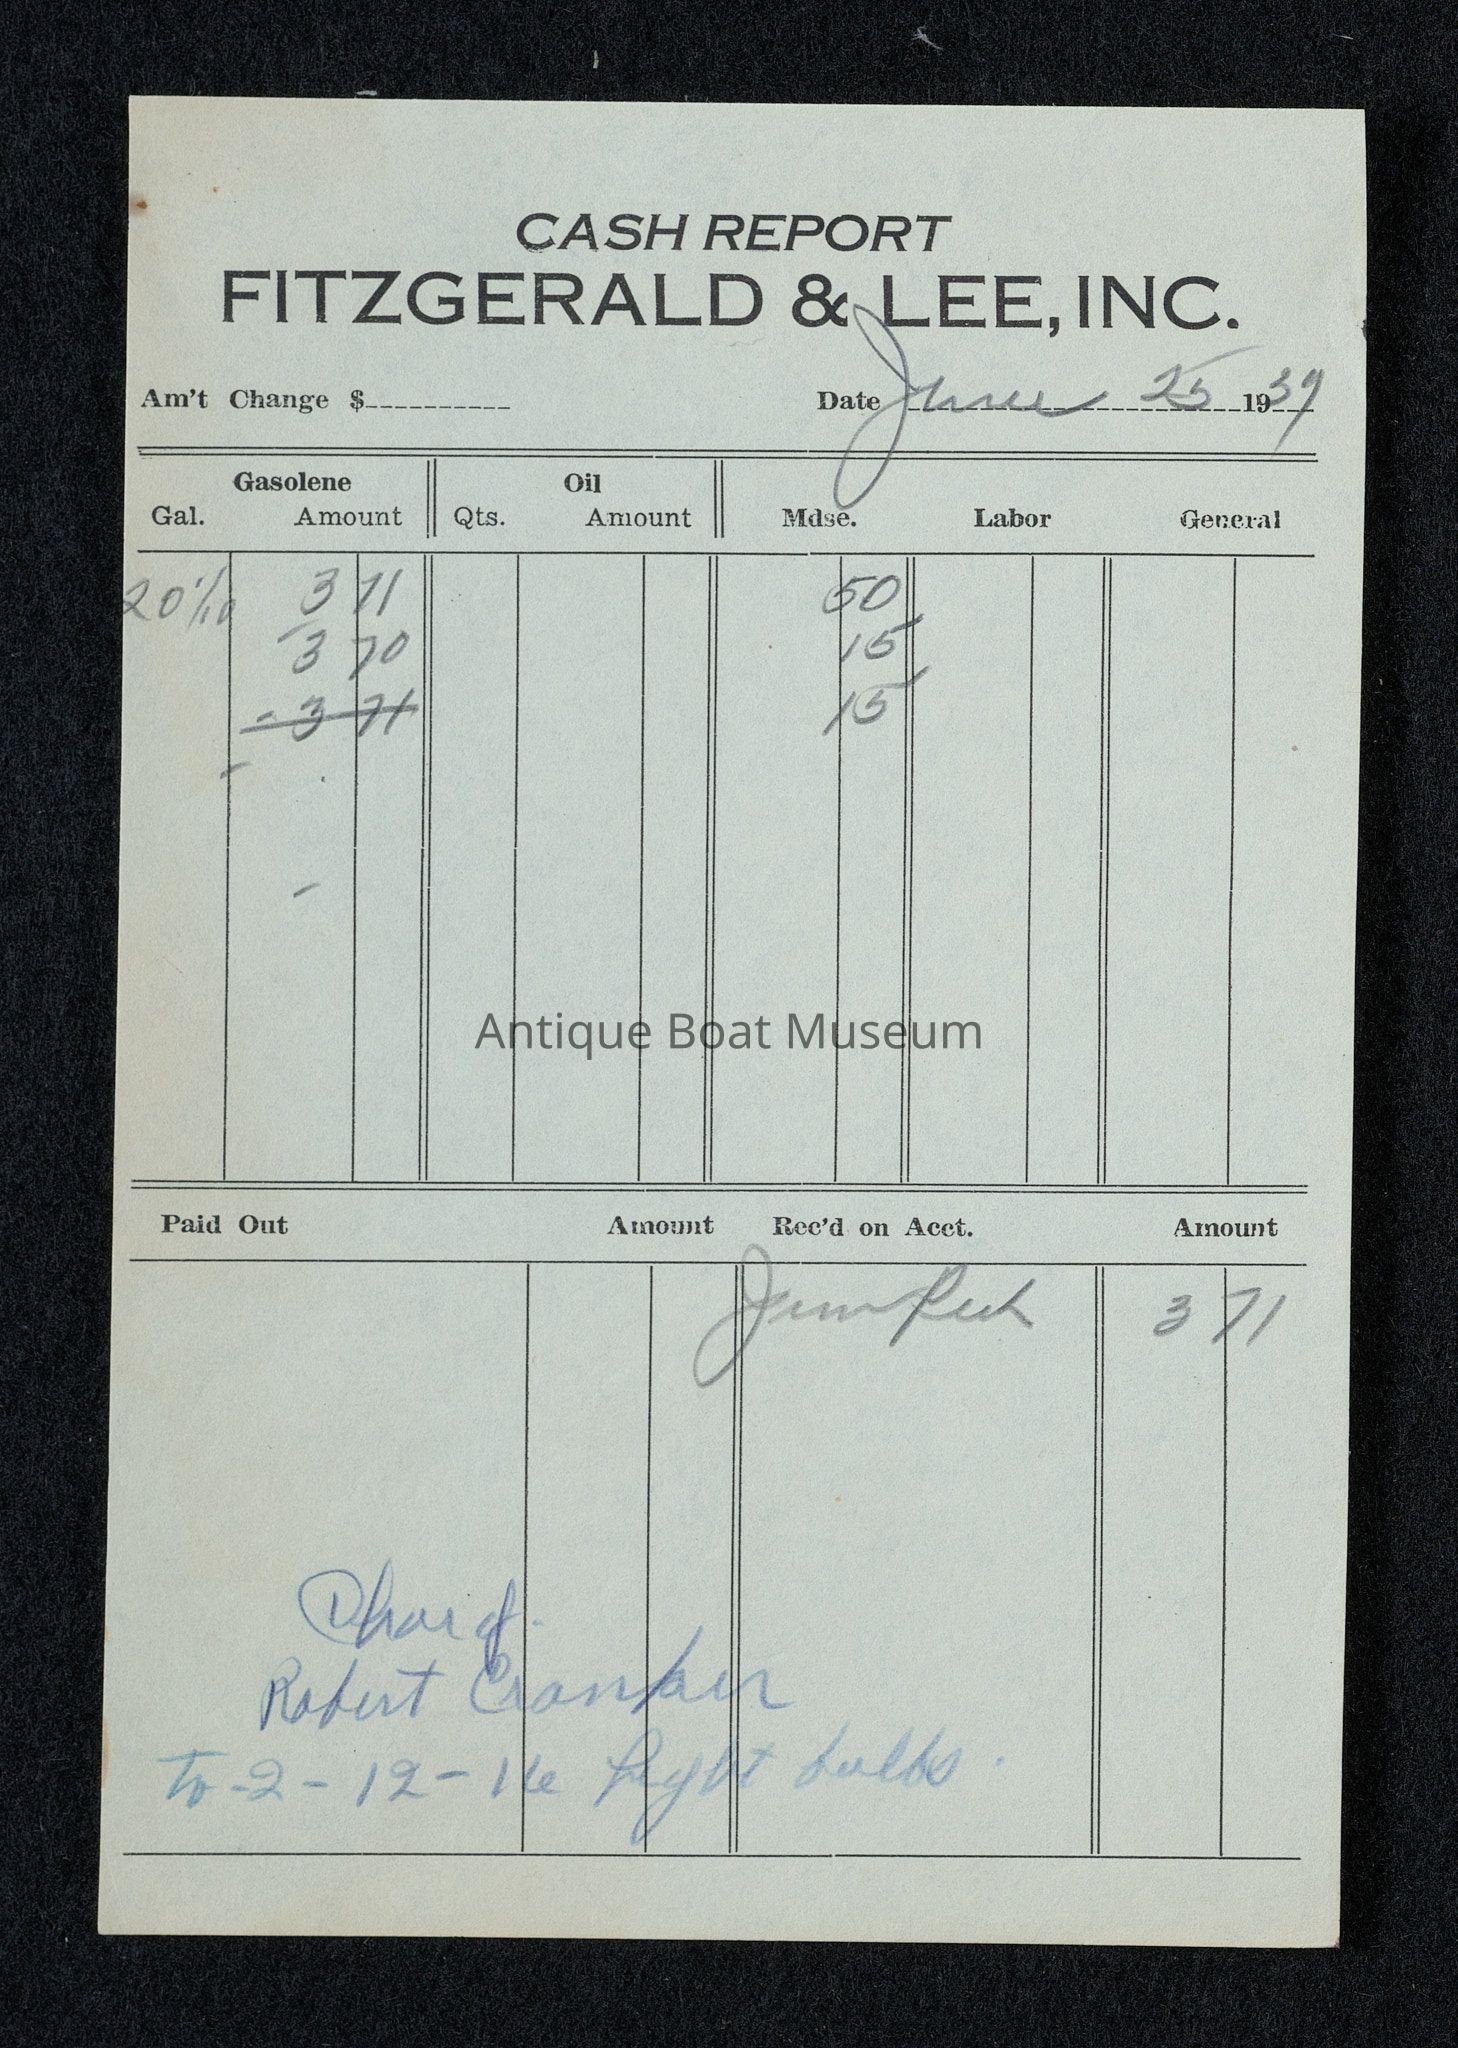 CASH REPORT
FITZGERALD & LEE, INC.
Am't Change $ Date June 25 1939
Gasolene Oil
Gal. Amount Qts. Amount Mdse. Labor General
20 1/10 3 71 50
3 70 15
3 71 15
Antique Boat Museum
Paid Out Amount Rec'd on Acct. Amount
Jim 3 71
Charg.
Robert
To -2- 12-16 light bulbs.